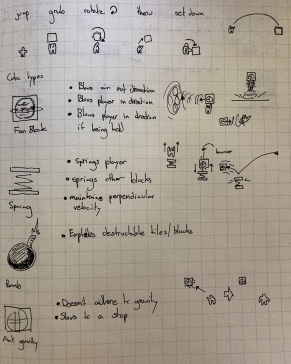 jump grab rotate throw set down
Cube types
Fan Block
• Blows air in direction
• Blows player in direction
• Blows player in direction
if being held
Spring
• Springs player
• springs other blocks
• maintains perpendicular
velocity
bounce
Bomb
• Explodes destructable tiles/blocks
Anti gravity
• Doesn't adhere to gravity
• Slows to a stop